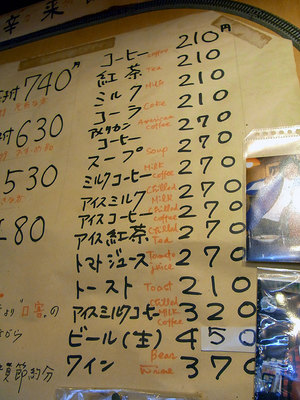 辛来
740円
630
530
180
コーヒー coffee 210円
紅茶 Tea 210
ミルク Milk 210
コーラ Coke 210
アメリカンコーヒー American coffee 270
スープ Soup 270
ミルクコーヒー Milk coffee 270
アイスミルク Chilled Milk 270
アイスコーヒー Chilled coffee 270
アイス紅茶 Chilled Tea 270
トマトジュース Tomato juice 270
トースト Toast 210
アイスミルクコーヒー Chilled Milk coffee 320
ビール(生) Bear 450
ワイン Wine 370
員節約分